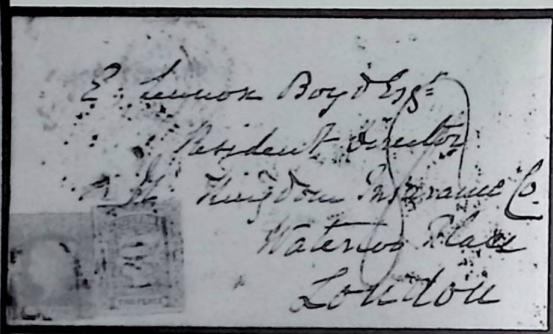 E. Lennox Boyd Esqr
Resident Director
Kingdom Insurance Co.
Waterloo Place
London